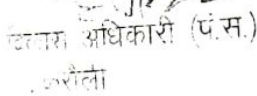 विकास अधिकारी (पं.स.)
करौली